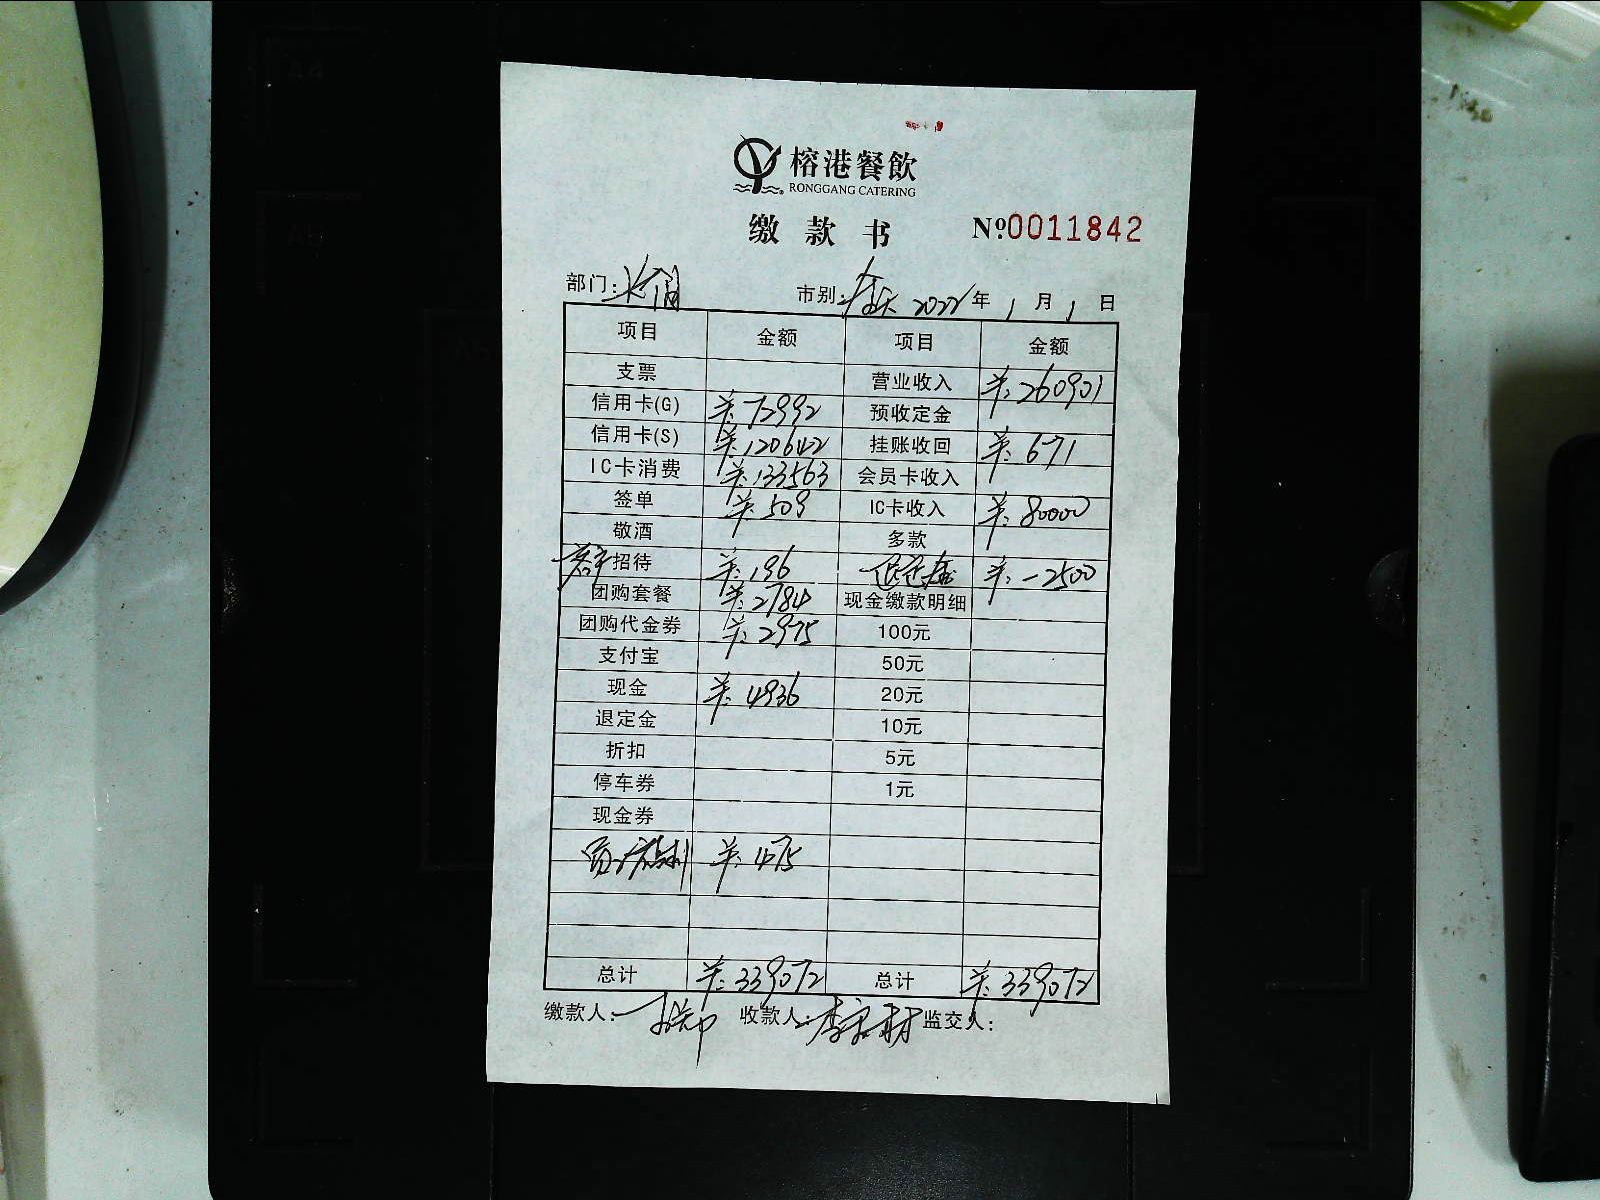 榕港餐飲
RONGGANG CATERING
缴款书 №0011842
部门: 市别: 全天 2022年1月1日
项目 金额 项目 金额
支票 营业收入 ¥:260901
信用卡(G) ¥:72992 预收定金
信用卡(S) ¥:120642 挂账收回 ¥:671
IC卡消费 ¥:133563 会员卡收入
签单 ¥:509 IC卡收入 ¥:80000
敬酒 多款
招待 ¥:196 退定金 ¥:-2500
团购套餐 ¥:2784 现金缴款明细
团购代金券 ¥:2975 100元
支付宝 50元
现金 ¥:4936 20元
退定金 10元
折扣 5元
停车券 1元
现金券
员工福利 ¥:475
总计 ¥:339072 总计 ¥:339072
缴款人: 收款人: 监交人: